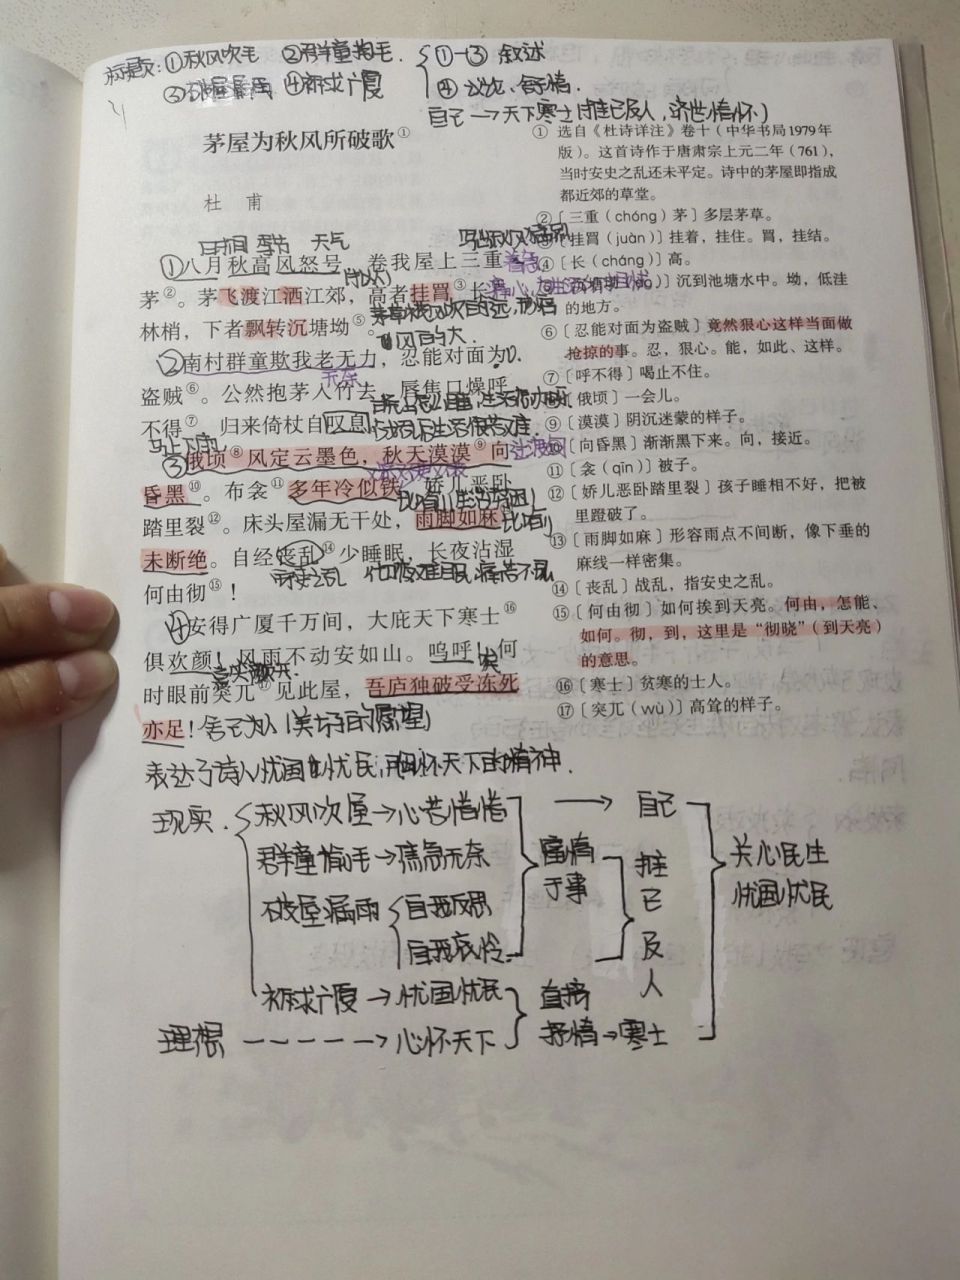 标题:①秋风吹毛 ②群童抱毛. ①—③ 叙述
③破屋 ④祈求广厦 ④ 议论、
自己 → 天下寒士(推己及人,济世情怀)
茅屋为秋风所破歌①
杜 甫
时间 季节 天气
①八月秋高风怒号,卷我屋上三重
茅②。茅飞渡江洒江郊,高者挂罥③长
林梢,下者飘转沉塘坳⑤。
风的大
②南村群童欺我老无力,忍能对面为
无奈
盗贼⑥。公然抱茅入竹去,唇焦口燥呼
不得⑦,归来倚杖自叹息
③俄顷⑧风定云墨色,秋天漠漠⑨向
昏黑⑩。布衾⑪多年冷似铁,娇儿恶卧
踏里裂⑫。床头屋漏无干处,雨脚如麻
未断绝。自经丧乱⑭少睡眠,长夜沾湿
何由彻⑮!
④安得广厦千万间,大庇天下寒士⑯
俱欢颜!风雨不动安如山。呜呼!何
时眼前突兀⑰见此屋,吾庐独破受冻死
亦足!舍己为人(美好的愿望)
表达了诗人忧国忧民,胸怀天下的精神.
① 选自《杜诗详注》卷十(中华书局1979年
版)。这首诗作于唐肃宗上元二年(761),
当时安史之乱还未平定。诗中的茅屋即指成
都近郊的草堂。
②〔三重(chóng)茅〕多层茅草。
挂罥(juàn)〕挂着,挂住。罥,挂结。
④〔长(cháng)〕高。
沉到池塘水中。坳,低洼
的地方。
⑥〔忍能对面为盗贼〕竟然狠心这样当面做
抢掠的事。忍,狠心。能,如此、这样。
⑦〔呼不得〕喝止不住。
〔俄顷〕一会儿。
⑨〔漠漠〕阴沉迷蒙的样子。
〔向昏黑〕渐渐黑下来。向,接近。
⑪〔衾(qīn)〕被子。
⑫〔娇儿恶卧踏里裂〕孩子睡相不好,把被
里蹬破了。
⑬〔雨脚如麻〕形容雨点不间断,像下垂的
麻线一样密集。
⑭〔丧乱〕战乱,指安史之乱。
⑮〔何由彻〕如何挨到天亮。何由,怎能、
如何。彻,到,这里是“彻晓”(到天亮)
的意思。
⑯〔寒士〕贫寒的士人。
⑰〔突兀(wù)〕高耸的样子。
现实. 秋风吹屋→心苦惜惜 → 自己
群童抱毛→焦急无奈 寓情 推 关心民生
破屋漏雨 自我反思 于事 己 忧国忧民
自我哀怜 及
祈求广厦→忧国忧民 直接 人
理想 ------→心怀天下 抒情→寒士